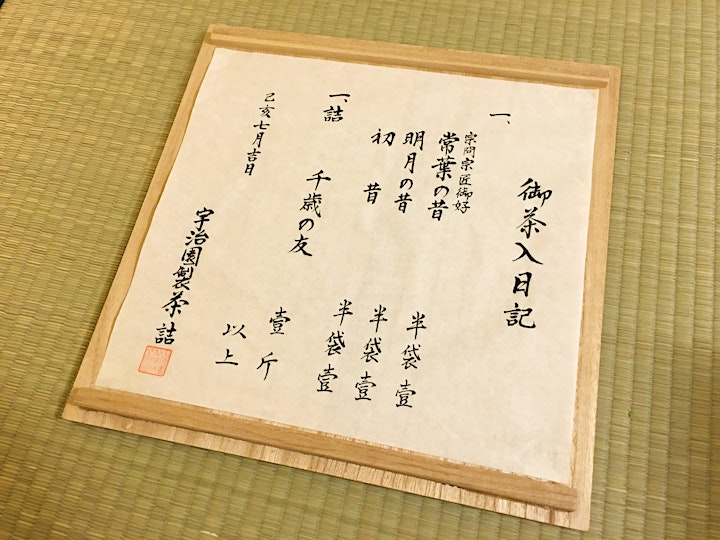 御茶入日記
一、
宗冏宗匠御好
常葉の昔 半袋壹
明月の昔 半袋壹
初昔 半袋壹
一、詰
千歳の友 壹斤
以上
己亥七月吉日
宇治園製茶詰